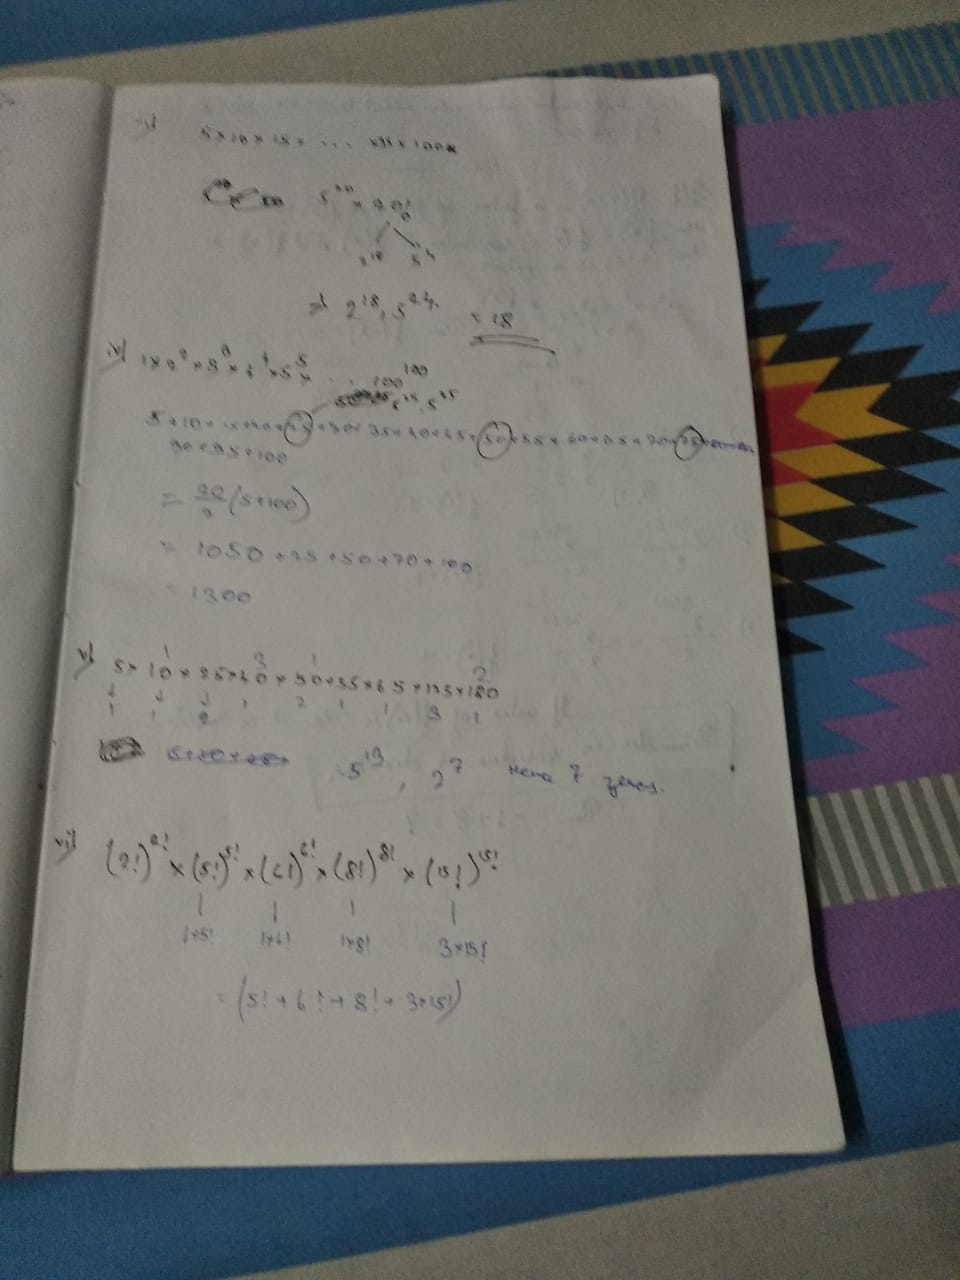 iii) 5 × 10 × 15 × ... × 95 × 100
5²⁰ × 20!
2¹⁸ 5⁴
⇒ 2¹⁸, 5²⁴
= 18
iv) 1 × 2² × 3³ × 4⁴ × 5⁵ × . . . 100¹⁰⁰
5²⁵ . 5²⁵
5+10+15+20+25+30+35+40+45+50+55+60+65+70+75+
90+95+100
= 20/2 (5+100)
= 1050 + 25 + 50 + 70 + 100
= 1300
v) 5 × 10 × 25 × 40 × 50 × 55 × 65 × 125 × 180
1 3 1 2
1 1 2 1 2 1 1 3 1
5¹³ , 2⁷ Hence 7 zeroes.
vi) (2!)²! × (5!)⁵! × (6!)⁶! × (8!)⁸! × (15!)¹⁵!
1×5! 1×6! 1×8! 3×15!
= (5! + 6! + 8! + 3×15!)